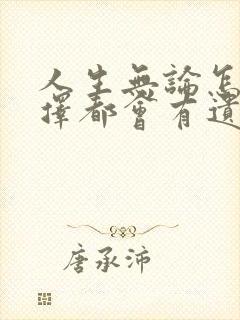 人生無論怎
擇都會有遺
唐承沛